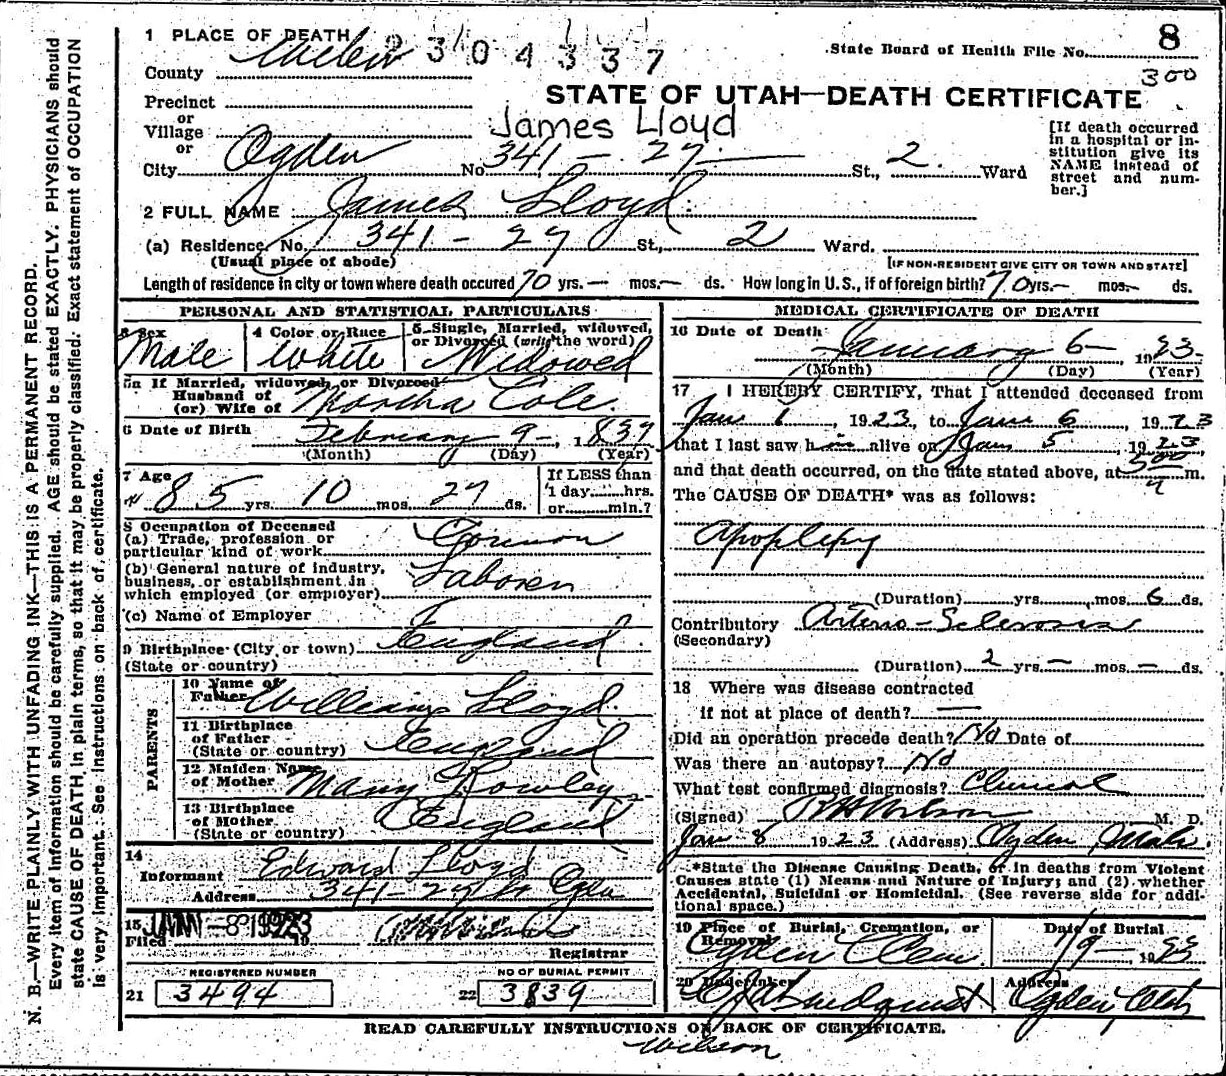 1 PLACE OF DEATH
2304337
State Board of Health File No. 8
300
County Weber
STATE OF UTAH—DEATH CERTIFICATE
Precinct
or
Village
James Lloyd
or
City Ogden No. 341 - 27 St., 2. Ward
[If death occurred in a hospital or institution give its NAME instead of street and number.]
2 FULL NAME James Lloyd.
(a) Residence. No. 341 - 27 St., 2 Ward.
(Usual place of abode)
[IF NON-RESIDENT GIVE CITY OR TOWN AND STATE]
Length of residence in city or town where death occured 70 yrs. — mos. — ds. How long in U.S., if of foreign birth? 70 yrs. — mos. — ds.
PERSONAL AND STATISTICAL PARTICULARS
3 Sex Male
4 Color or Race White
5 Single, Married, widowed, or Divorced (write the word) Widowed
5a If Married, widowed, or Divorced
Husband of
(or) Wife of Martha Cole.
6 Date of Birth February 9 -, 1839
(Month) (Day) (Year)
7 Age 85 yrs. 10 mos. 27 ds.
If LESS than 1 day......hrs. or......min.?
8 Occupation of Deceased
(a) Trade, profession or
particular kind of work
(b) General nature of industry,
business, or establishment in
which employed (or employer) Laborer
(c) Name of Employer
9 Birthplace (City or town) England
(State or country)
PARENTS
10 Name of Father William Lloyd.
11 Birthplace of Father England
(State or country)
12 Maiden Name of Mother Mary Rowley
13 Birthplace of Mother England
(State or country)
14
Informant Edward Lloyd
Address 341 - 27 St Ogden
15
Filed JAN -8 1923 19
Registrar
REGISTERED NUMBER
21 3494
NO OF BURIAL PERMIT
22 3839
MEDICAL CERTIFICATE OF DEATH
16 Date of Death January 6 -, 1923.
(Month) (Day) (Year)
17 I HEREBY CERTIFY, That I attended deceased from
Jan 1, 1923, to Jan 6, 1923
that I last saw him alive on Jan 5, 1923,
and that death occurred, on the date stated above, at m.
The CAUSE OF DEATH* was as follows:
Apoplexy
(Duration) yrs. mos. 6 ds.
Contributory Arterio-Sclerosis
(Secondary)
(Duration) 2 yrs. — mos. — ds.
18 Where was disease contracted
if not at place of death? —
Did an operation precede death? No Date of
Was there an autopsy? No
What test confirmed diagnosis? Clinical
(Signed) Wilson M. D.
Jan 8 1923 (Address) Ogden Utah.
*State the Disease Causing Death, or in deaths from Violent
Causes state (1) Means and Nature of Injury; and (2) whether
Accidental, Suicidal or Homicidal. (See reverse side for addi-
tional space.)
19 Place of Burial, Cremation, or Removal Ogden Cem
Date of Burial 1/9 - 1923
20 Undertaker
Address Ogden, Utah
READ CAREFULLY INSTRUCTIONS ON BACK OF CERTIFICATE.
Wilson
N. B.—WRITE PLAINLY WITH UNFADING INK—THIS IS A PERMANENT RECORD.
Every item of information should be carefully supplied. AGE should be stated EXACTLY. PHYSICIANS should
state CAUSE OF DEATH in plain terms, so that it may be properly classified. Exact statement of OCCUPATION
is very important. See instructions on back of certificate.